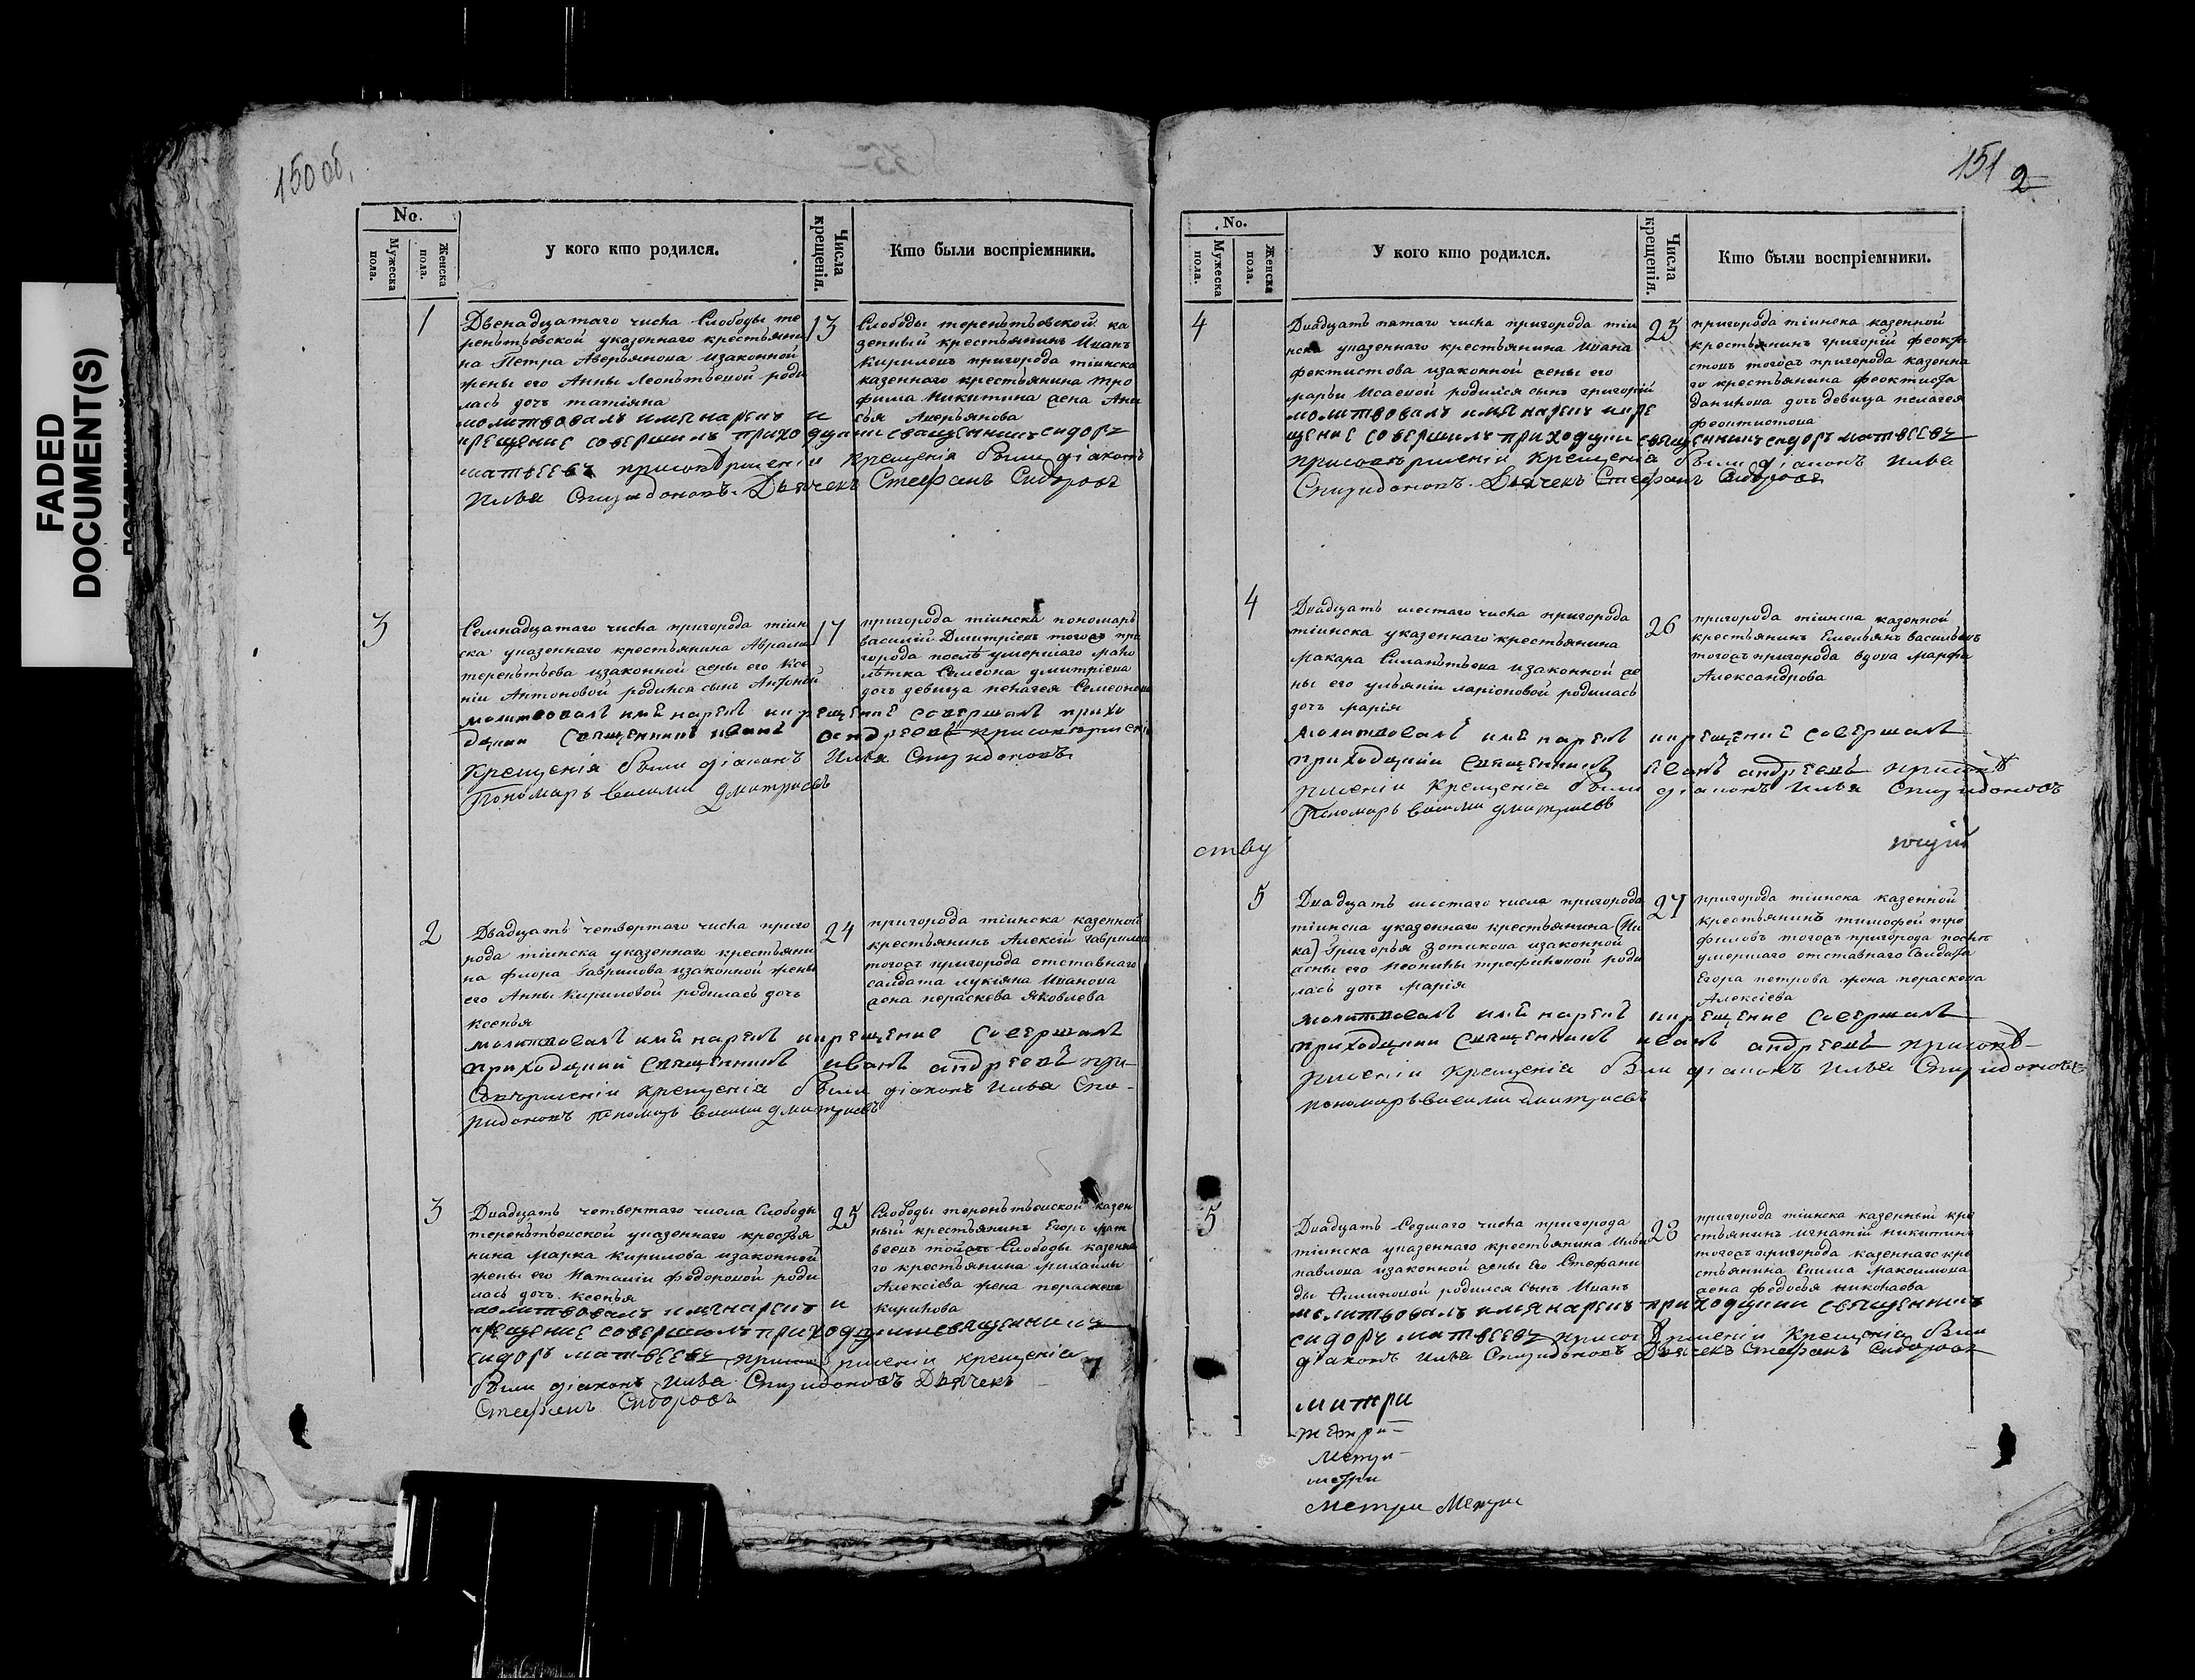 FADED
DOCUMENT(S)
150 об.
No.
Мужеска пола.
Женска пола.
У кого кто родился.
Числа крещенія.
Кто были воспріемники.
1
Двенадцатаго числа Слободы те
рентьевской указеннаго крестьяни
на Петра Аверьянова изаконной
жены его Анны Леонтьевой роди
лась дочь татіяна
молитвовалъ имя нарекъ и
крещение совершилъ приходции священникъ сидоръ
матвеевъ присовершеніи крещенія были діаконъ
Илья Спиридоновъ. Дьячекъ Стефанъ Сидоровъ
13
Слободы терентьевской ка
зенный крестьянинъ Иванъ
Кириловъ пригорода тіинска
казеннаго крестьянина тро
фима Никитина жена Ани
сья Аверьянова
3
Семнадцатаго числа пригорода тіин
ска указеннаго крестьянина Аврама
терентьева изаконной жены его Ксе
ніи Антоновой родился сынъ Антоній
молитвовалъ имя нарекъ икрещение совершалъ прихо
дции священникъ иванъ андреевъ присовершени
крещенія были діаконъ Илья Спиридоновъ
Пономарь Василии Дмитриевъ
17
пригорода тіинска пономарь
василій Дмитріевъ тогожъ при
города послѣ умершаго мало
лѣтка Симеона дмитріева
дочь девица пелагея Семеонова
2
Двадцать четвертаго числа приго
рода тіинска указеннаго крестьяни
на флора Гаврилова изаконной жены
его Анны Кириловой родилась дочь
ксенья
молитвовалъ имя нарекъ икрещение совершалъ
приходции священникъ иванъ андреевъ при-
совершеніи крещенія были діаконъ Илья Спи-
ридоновъ пономарь Василии Дмитриевъ
24
пригорода тіинска казенной
крестьянинъ Алексій Гавриловъ
тогожъ пригорода отставнаго
салдата лукіяна Иванова
жена пераскева Яковлева
3
Двадцать четвертаго числа Слободы
терентьевской указеннаго крестья
нина марка кирилова изаконной
жены его Наталіи федоровой роди
лась дочь ксенья
молитвовалъ имя нарекъ и
крещение совершилъ приходции священникъ
сидоръ матвеевъ присовершеніи крещеніа
были діаконъ Илья Спиридоновъ Дьячекъ
Стефанъ Сидоровъ
25
Слободы терентьевской казен
ный крестьянинъ Егоръ мат
веевъ тойжъ Слободы казенна
го крестьянина Михайлы
Алексіева жена пераскева
Кирилова
151 2
No.
Мужеска пола.
Женска пола.
У кого кто родился.
Числа крещенія.
Кто были воспріемники.
4
Двадцать пятаго числа пригорода тіи
нска указеннаго крестьянина Ивана
феоктистова изаконной жены его
марьи Исаевой родился сынъ григорій
молитвовалъ имя нарекъ икре
щение совершилъ приходции священникъ сидоръ матвеевъ
присовершеніи крещенія были діаконъ Илья
Спиридоновъ. Дьячекъ Стефанъ Сидоровъ
25
пригорода тіинска казенной
крестьянинъ григорій феокти
стовъ тогожъ пригорода казенна
го крестьянина феоктиста
данилова дочь девица пелагея
феоктистова
4
Двадцать шестаго числа пригорода
тіинска указеннаго крестьянина
макара Силантьева изаконной же
ны его ульяніи ларіоновой родилась
дочь марія
молитвовалъ имя нарекъ икрещение совершалъ
приходции священникъ иванъ андреевъ присове
ршеніи крещеніа были діаконъ Илья Спиридоновъ
Пономарь Василии дмитриевъ
26
пригорода тіинска казенной
крестьянинъ Емельянъ васильевъ
тогожъ пригорода вдова марфа
Александрова
ству
5
Двадцать шестаго числа пригорода
тіинска указеннаго крестьянина (Ни
ка) Григорья Зотикова изаконной
жены его Неонилы трефиловой роди
лась дочь марія
молитвовалъ имя нарекъ икрещение совершалъ
приходции священникъ иванъ андреевъ присове-
ршеніи крещенія были діаконъ Илья Спиридоновъ
пономарь василии Дмитриевъ
27
пригорода тіинска казенной
крестьянинъ тимофей тро
филовъ тогожъ пригорода послѣ
умершаго отставнаго Салдата
Егора петрова жена пераскева
Алексіева
5
Двадцать Седмаго числа пригорода
тіинска указеннаго крестьянина Ильи
павлова изаконной жены его Стефани
ды родился сынъ Иванъ
молитвовалъ имя нарекъ приходции священникъ
сидоръ матвеевъ присовершеніи крещеніа были
діаконъ Илья Спиридоновъ Дьячекъ Стефанъ Сидоровъ
28
пригорода тіинска казенный кре
стьянинъ игнатій никитинъ
тогожъ пригорода казеннаго кре
стьянина Екима максимова
жена федосья николаева
митри
метри
Метри
метри
Метри Метри